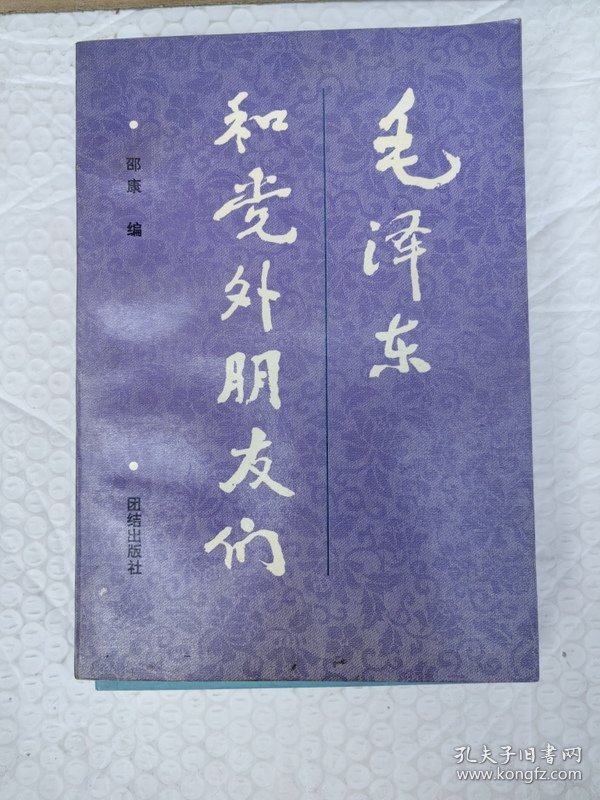 毛泽东
和党外朋友们
邵康 编
团结出版社
孔夫子旧书网
www.kongfz.com